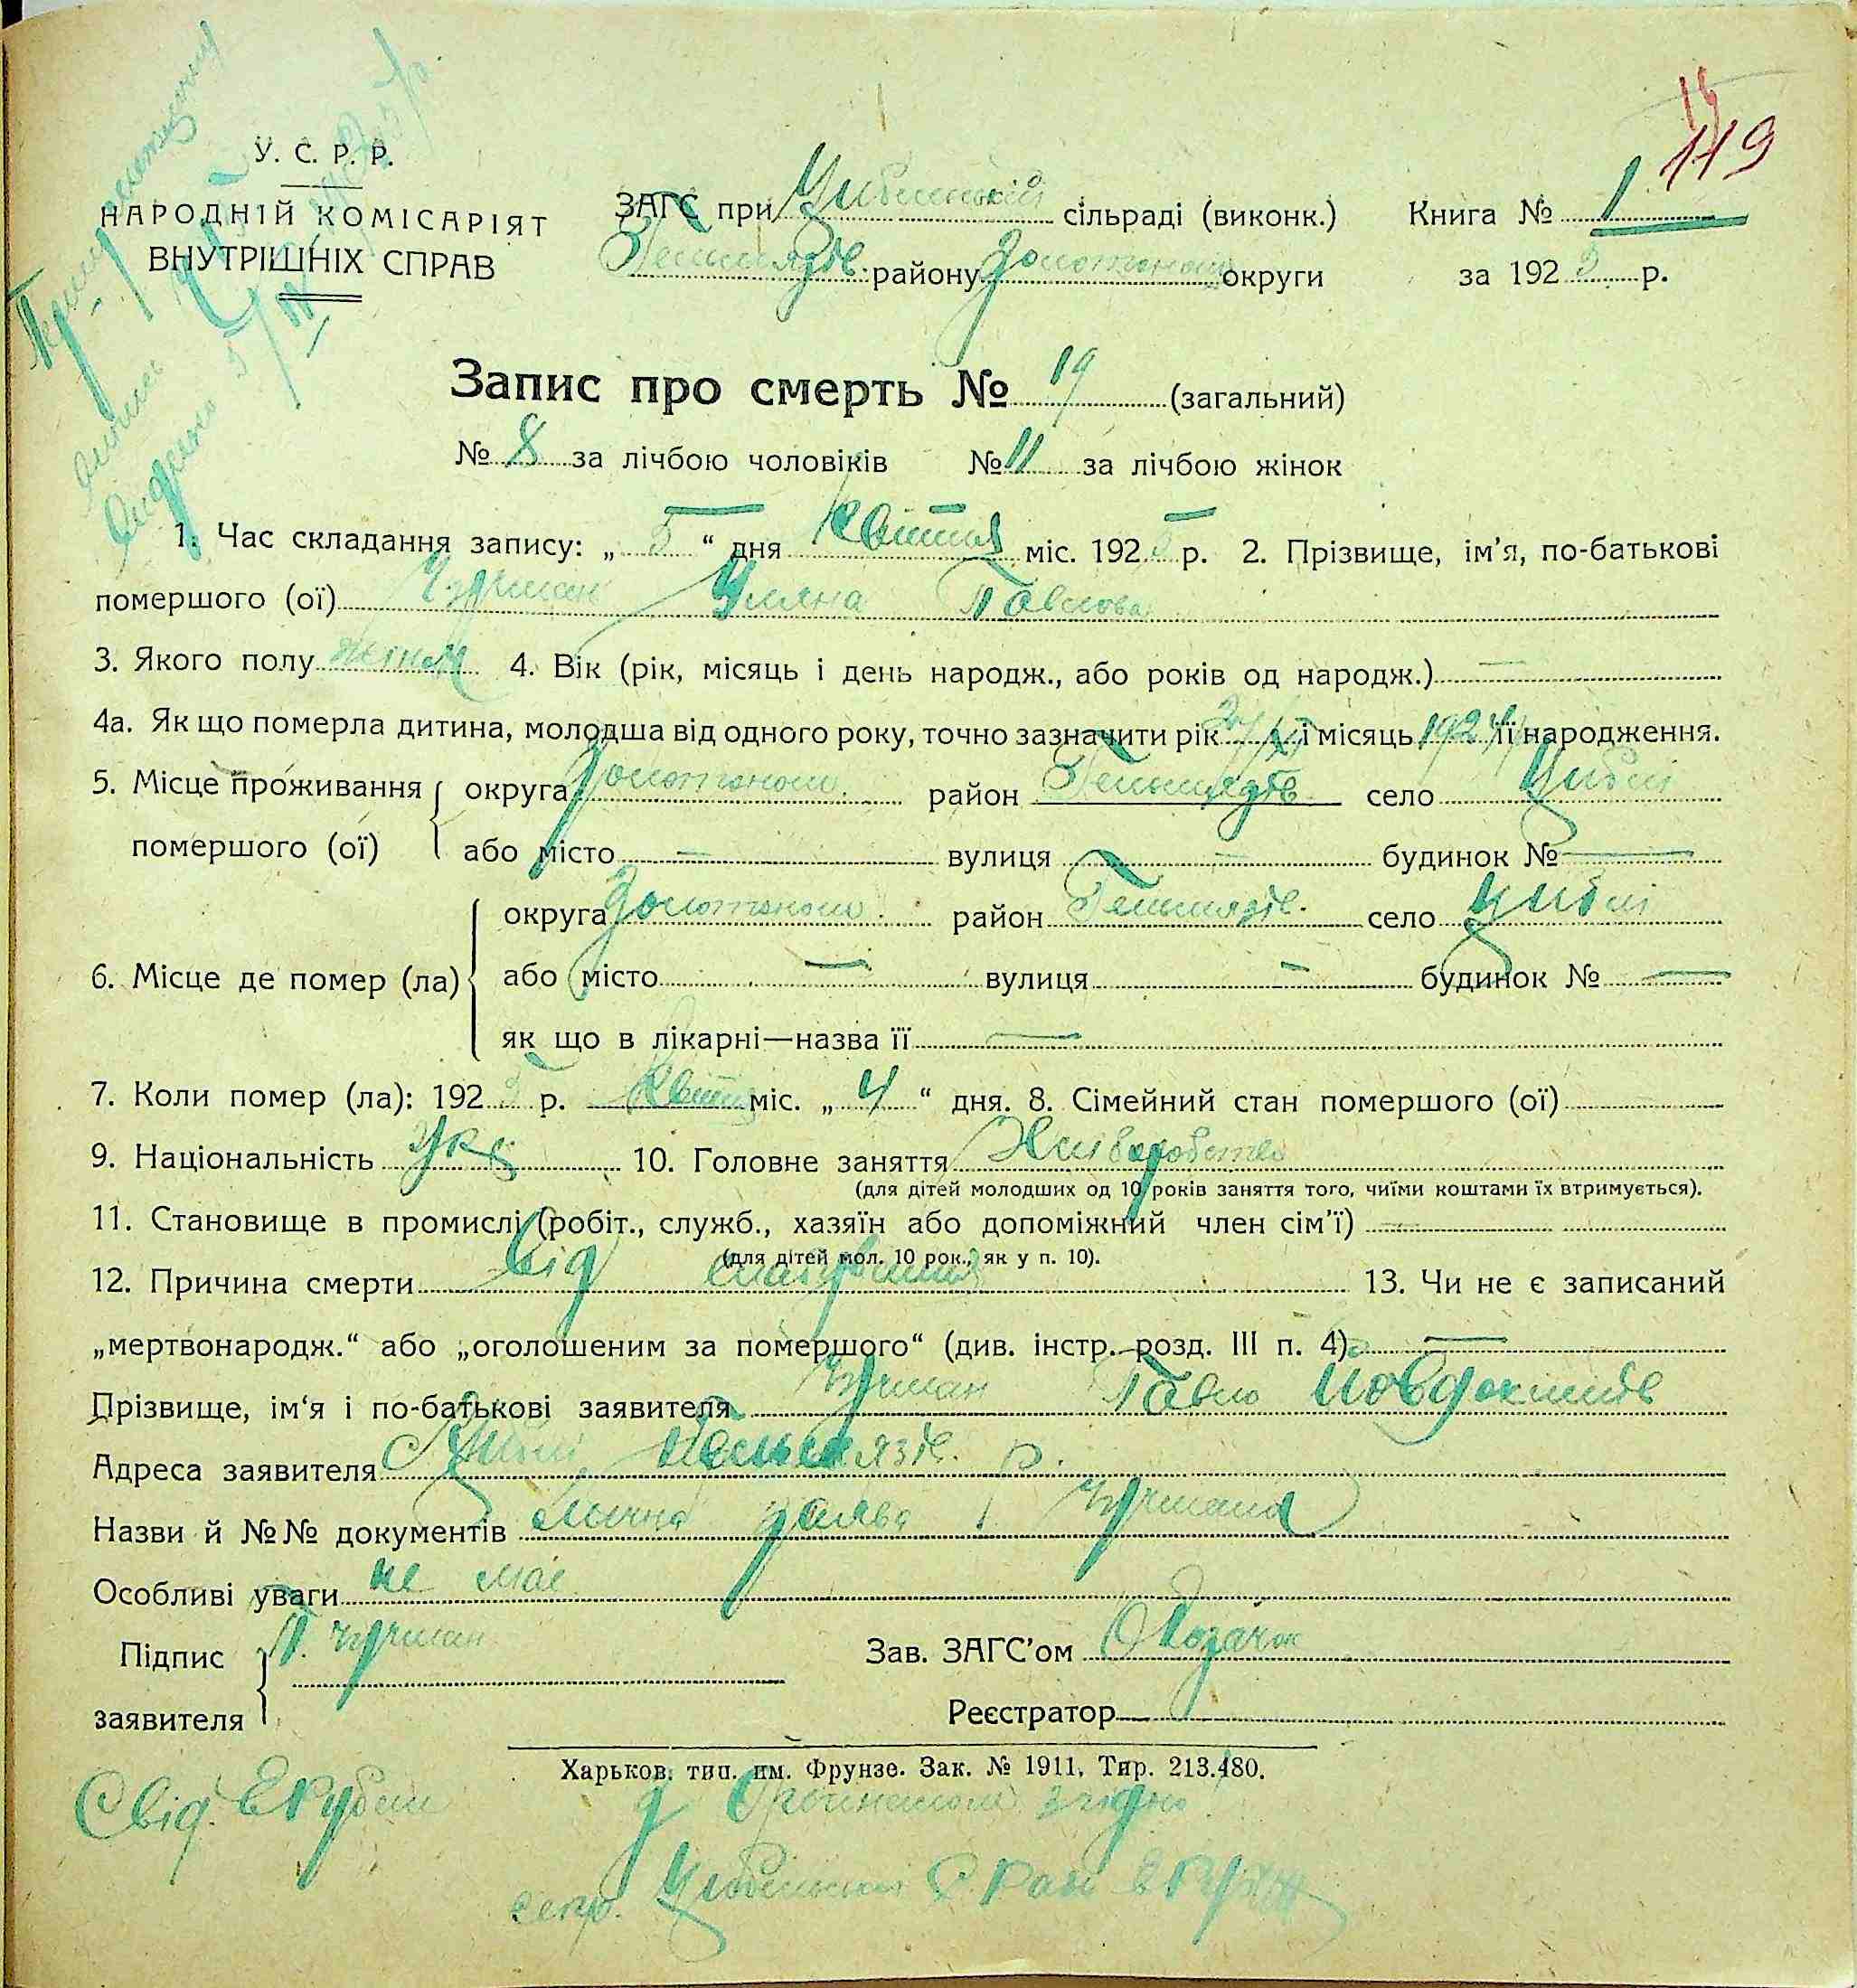 119
У. С. Р. Р.
НАРОДНІЙ КОМІСАРІЯТ
ВНУТРІШНІХ СПРАВ
ЗАГС при Цибленській сільраді (виконк.) Книга № 1
Гельмязів. району Золотонош округи за 1925 р.
Запис про смерть № 19 (загальний)
№ 8 за лічбою чоловіків № 11 за лічбою жінок
1. Час складання запису: „ 5 “ дня Квітня міс. 1925 р. 2. Прізвище, ім’я, по-батькові
помершого (ої) Уляна Павлова
3. Якого полу жіноч 4. Вік (рік, місяць і день народж., або років од народж.) —
4а. Як що померла дитина, молодша від одного року, точно зазначити рік і місяць 1924 її народження.
5. Місце проживання округа Золотонош. район Гельмязів село Циблі
помершого (ої) або місто — вулиця — будинок № —
округа Золотонош. район Гельмязів. село Циблі
6. Місце де помер (ла) або місто — вулиця — будинок № —
як що в лікарні—назва її —
7. Коли помер (ла): 1925 р. Квітня міс. „ 4 “ дня. 8. Сімейний стан помершого (ої)
9. Національність Укр 10. Головне заняття Хліборобство
(для дітей молодших од 10 років заняття того, чиїми коштами їх втримується).
11. Становище в промислі (робіт., служб., хазяїн або допоміжний член сім’ї) —
(для дітей мол. 10 рок., як у п. 10).
12. Причина смерти Від 13. Чи не є записаний
„мертвонародж.“ або „оголошеним за помершого“ (див. інстр. розд. III п. 4) —
Прізвище, ім‘я і по-батькові заявителя Павло Йовдокимів
Адреса заявителя С Циблі, Гельмязів. р.
Назви й №№ документів Лична заява
Особливі уваги не має
Підпис П.
заявителя
Зав. ЗАГС’ом Козачок
Реєстратор
Харьков. тип. им. Фрунзе. Зак. № 1911. Тир. 213.480.
Свід.
З Оригіналом згідно
секр. Цибленської С. Ради